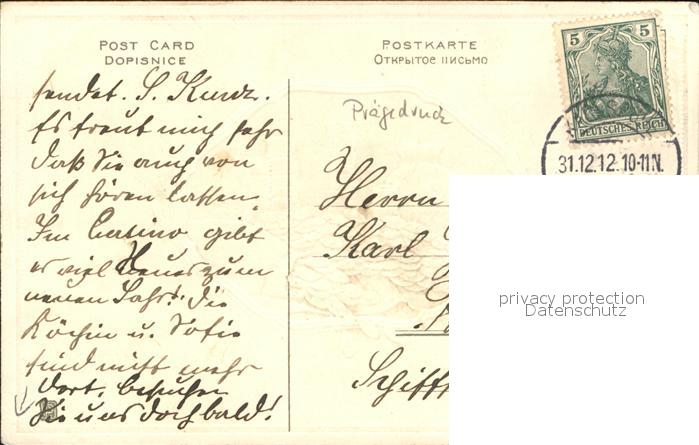 POST CARD
DOPISNICE
POSTKARTE
ОТКРЫТОЕ ПИСЬМО
5 5
DEUTSCHES REICH
31.12.12. 10-11 N.
Prägedruck
sendet. S. Kunz.
Es freut mich sehr
daß Sie auch von
sich hören lassen.
Im Casino gibt
es viel Neues zum
neuen Jahr! die
Köchin u. Sofie
sind nicht mehr
dort. besuchen
Sie uns doch bald!
Herrn
Karl
Schiff
privacy protection
Datenschutz